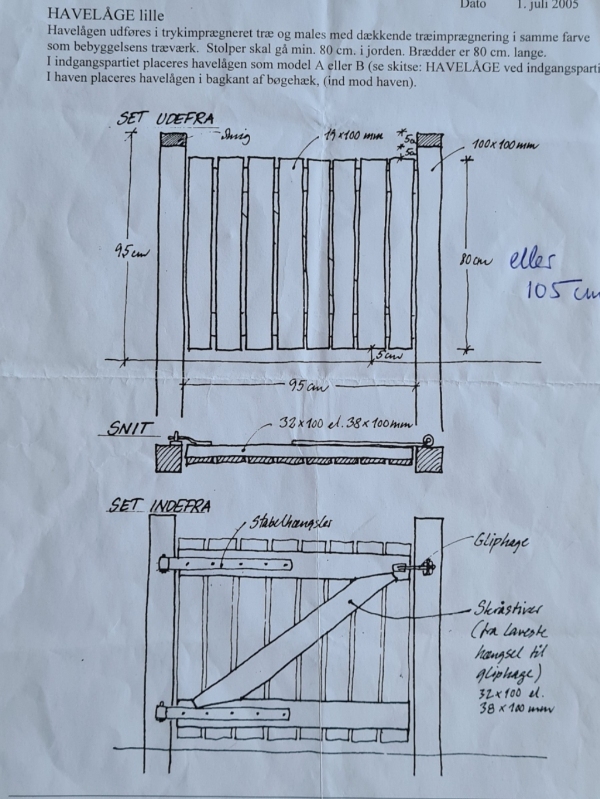 Dato 1. juli 2005
HAVELÅGE lille
Havelågen udføres i trykimprægneret træ og males med dækkende træimprægnering i samme farve
som bebyggelsens træværk. Stolper skal gå min. 80 cm. i jorden. Brædder er 80 cm. lange.
I indgangspartiet placeres havelågen som model A eller B (se skitse: HAVELÅGE ved indgangsparti
I haven placeres havelågen i bagkant af bøgehæk, (ind mod haven).
SET UDEFRA
19x100 mm
100x100 mm
95 cm
80 cm
eller
105 cm
5 cm
95 cm
SNIT
32x100 el. 38x100 mm
SET INDEFRA
Stabelhængsler
Gliphage
Skråstiver
(fra laveste
hængsel til
gliphage)
32x100 el.
38x100 mm